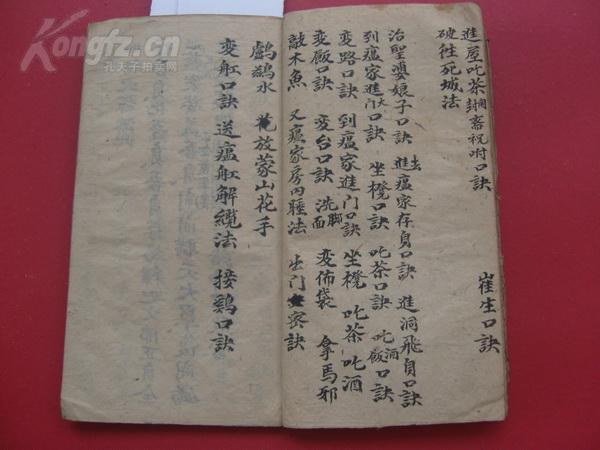 進屋吃茶封斋祝咐口訣 崔生口訣
破往死城法
治聖婆娘子口訣 進瘟家存身口訣 進洞飛身口訣
到瘟家進大门口訣 坐櫈口訣 吃茶口訣 吃酒飯口訣
变路口訣 到瘟家進门口訣 坐櫈 吃茶 吃酒
变飯口訣 变台口訣 洗脚面 变佈袋 拿馬邪
敲木魚 又瘟家房内睡法 出门宻訣
鸕鶿水 花放蒙山花手
变舡口訣 送瘟舡解纜法 接鷄口訣
Kongfz.cn
孔夫子拍卖网